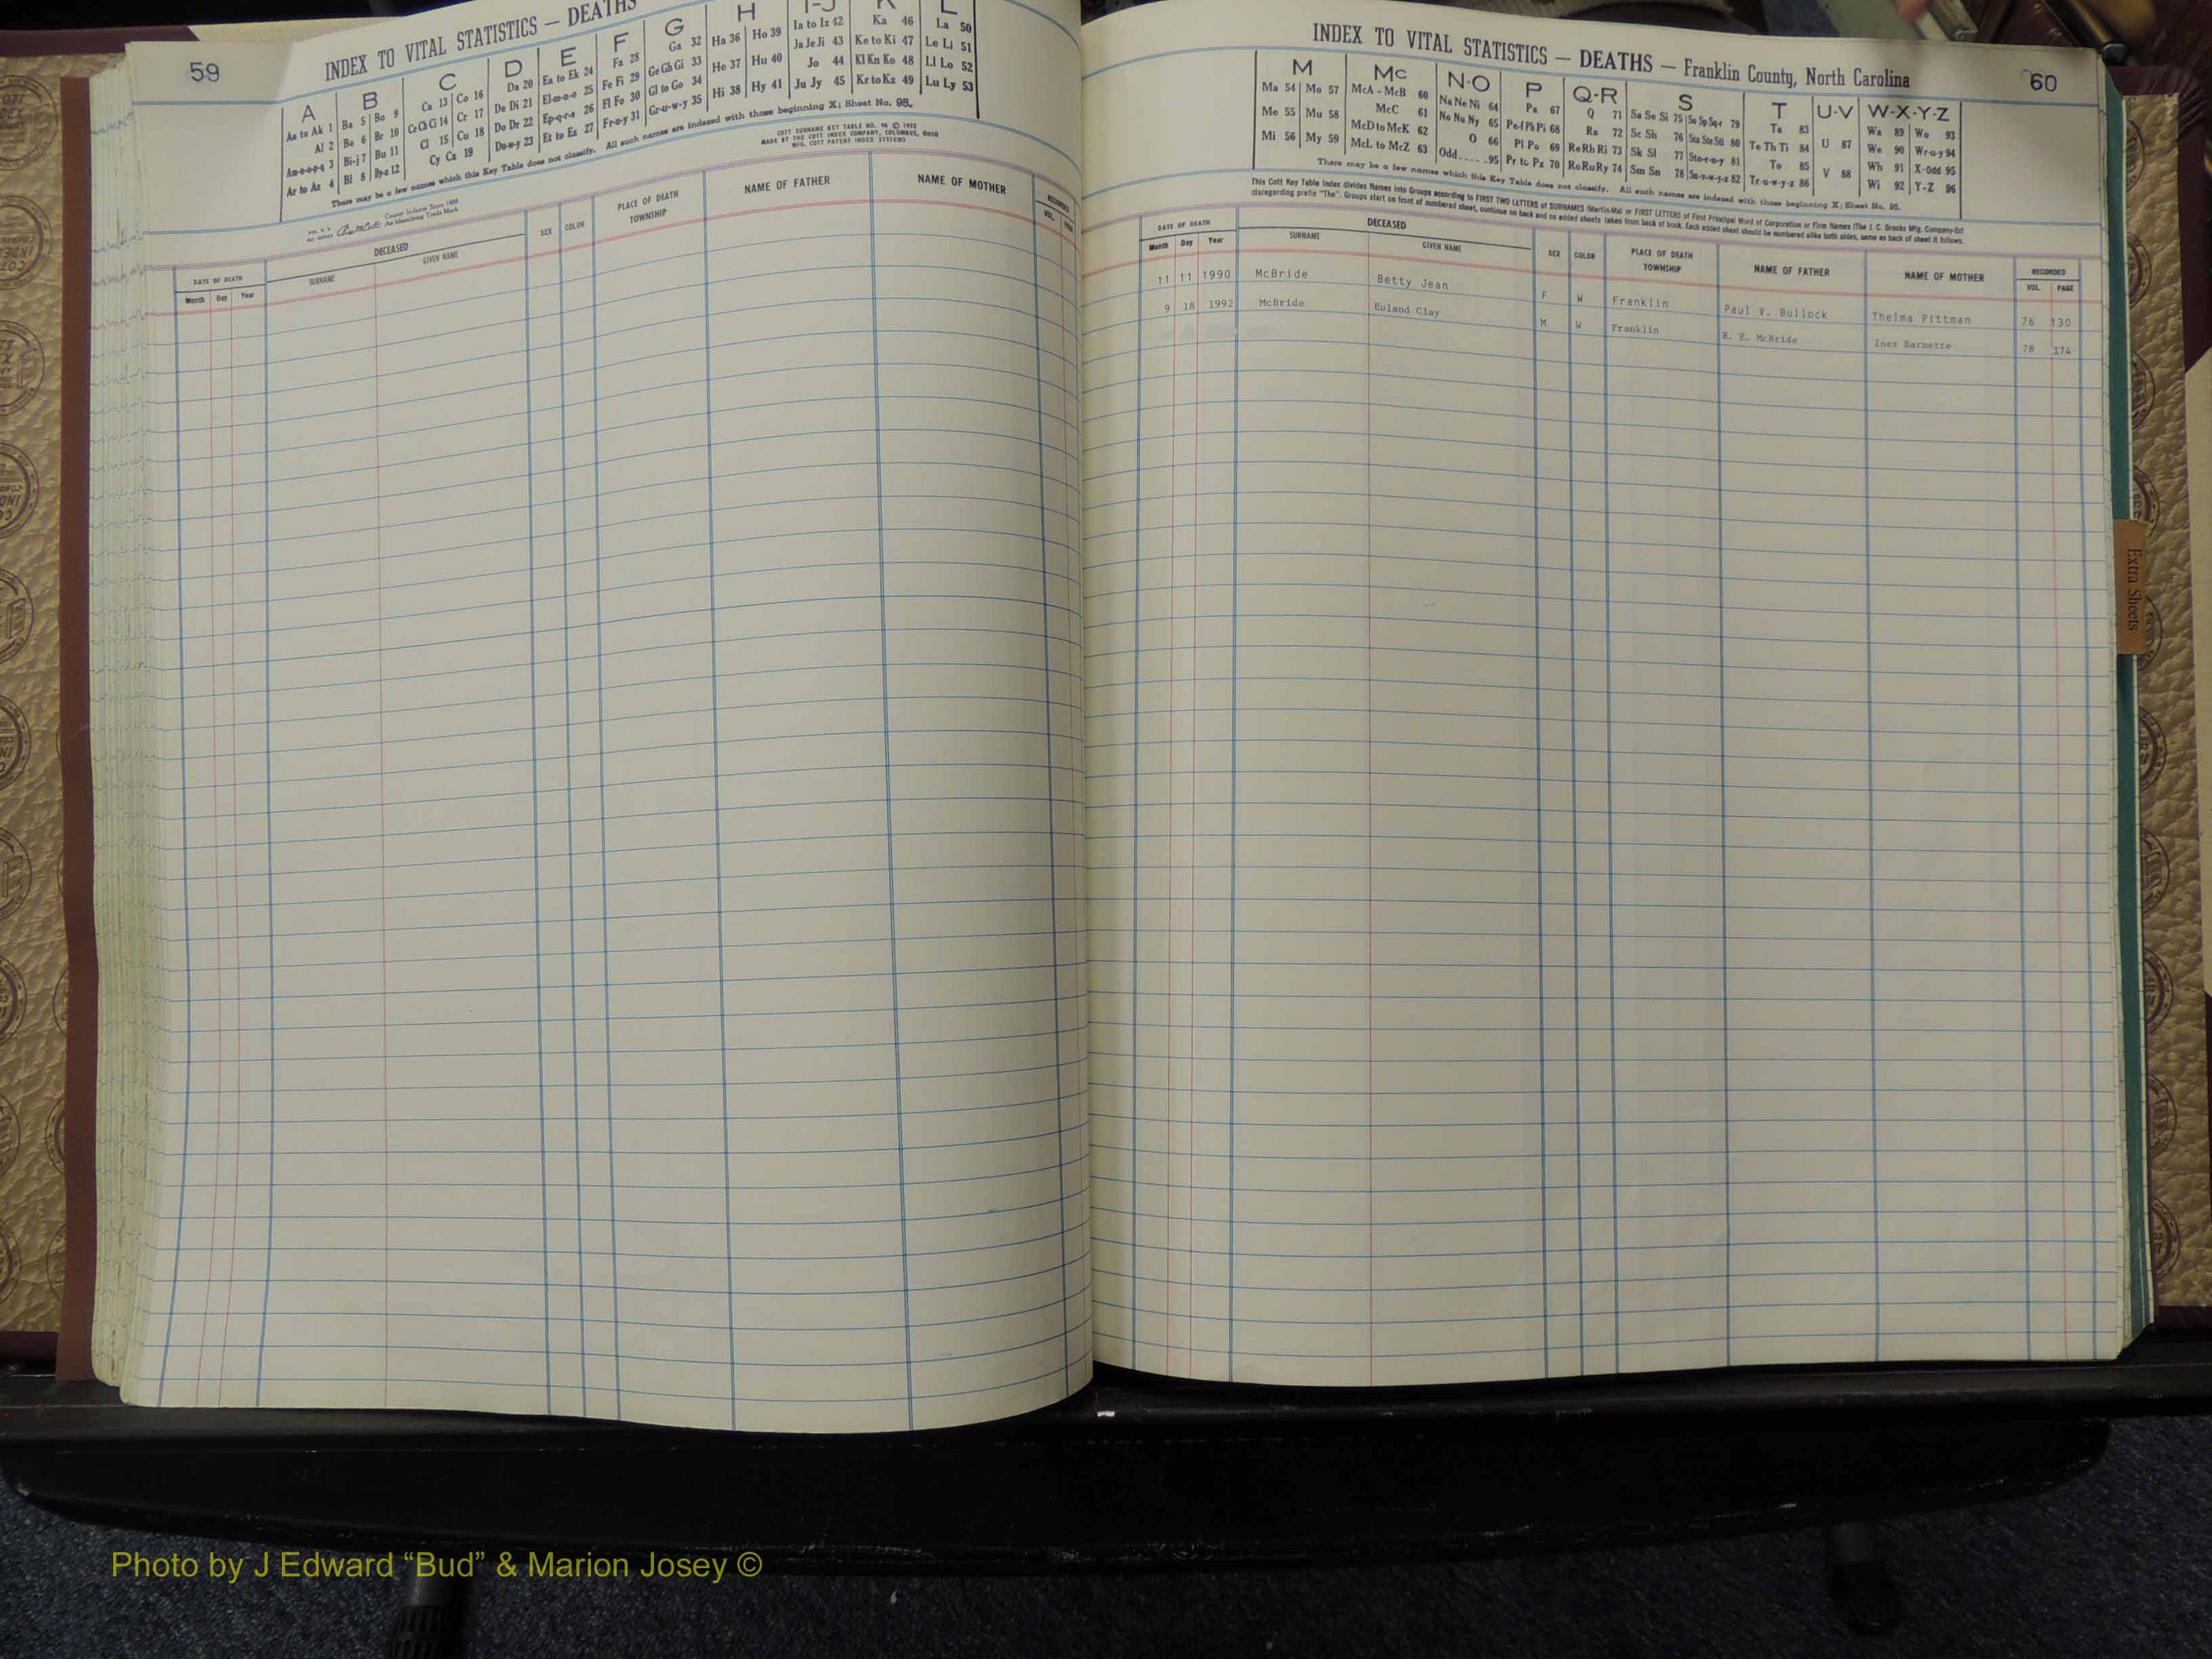 59
INDEX TO VITAL STATISTICS — DEATHS
A B C D E F G H I-J K L
Aa to Ak 1 Ba 5 Bo 9 Ca 13 Co 16 Da 20 Ea to Ek 24 Fa 28 Ga 32 Ha 36 Ho 39 Ia to Iz 42 Ka 46 La 50
Al 2 Be 6 Br 10 Ce Ch Ci 14 Cr 17 De Di 21 El-m-n-o 25 Fe Fi 29 Ge Gh Gi 33 He 37 Hu 40 Ja Je Ji 43 Ke to Ki 47 Le Li 51
Am-n-o-p-q 3 Bi-j 7 Bu 11 Cl 15 Cu 18 Do Dr 22 Ep-q-r-s 26 Fl Fo 30 Gl to Go 34 Hi 38 Hy 41 Jo 44 Kl Kn Ko 48 Ll Lo 52
Ar to Az 4 Bl 8 By-z 12 Cy Cz 19 Du-w-y 23 Et to Ez 27 Fr-u-y 31 Gr-u-w-y 35 Ju Jy 45 Kr to Kz 49 Lu Ly 53
There may be a few names which this Key Table does not classify. All such names are indexed with those beginning X; Sheet No. 95.
COTT SURNAME KEY TABLE NO. 96 © 1953
MADE BY THE COTT INDEX COMPANY, COLUMBUS, OHIO
MFG. COTT PATENT INDEX SYSTEMS
County Indexes Since 1888
An Identifying Trade Mark
DATE OF DEATH DECEASED SEX COLOR PLACE OF DEATH TOWNSHIP NAME OF FATHER NAME OF MOTHER RECORDED
Month Day Year SURNAME GIVEN NAME VOL. PAGE
INDEX TO VITAL STATISTICS — DEATHS — Franklin County, North Carolina
60
M Mc N-O P Q-R S T U-V W-X-Y-Z
Ma 54 Mo 57 McA - McB 60 Na Ne Ni 64 Pa 67 Q 71 Sa Se Si 75 So Sp Sq-r 79 Ta 83 U 87 Wa 89 Wo 93
Me 55 Mu 58 McC 61 No Nu Ny 65 Pe-f Ph Pi 68 Ra 72 Sc Sh 76 Sta Ste Sti 80 Te Th Ti 84 V 88 We 90 Wr-u-y 94
Mi 56 My 59 McD to McK 62 O 66 Pl Po 69 Re Rh Ri 73 Sk Sl 77 Sto-r-u-y 81 To 85 Wh 91 X-Odd 95
McL to McZ 63 Odd 95 Pr to Pz 70 Ro Ru Ry 74 Sm Sn 78 Su-v-w-y-z 82 Tr-u-w-y-z 86 Wi 92 Y-Z 96
There may be a few names which this Key Table does not classify. All such names are indexed with those beginning X; Sheet No. 95.
This Cott Key Table Index divides Names into Groups according to FIRST TWO LETTERS of SURNAMES (Martin-Ma) or FIRST LETTERS of First Principal Word of Corporation or Firm Names (The J. C. Brooks Mfg. Company-Br)
disregarding prefix "The". Groups start on front of numbered sheet, continue on back and on added sheets taken from back of book. Each added sheet should be numbered alike both sides, same as back of sheet it follows.
DATE OF DEATH DECEASED SEX COLOR PLACE OF DEATH TOWNSHIP NAME OF FATHER NAME OF MOTHER RECORDED
Month Day Year SURNAME GIVEN NAME VOL. PAGE
11 11 1990 McBride Betty Jean F W Franklin Paul V. Bullock Thelma Pittman 76 130
9 18 1992 McBride Euland Clay M W Franklin R. E. McBride Inez Barnette 78 174
Extra Sheets
Photo by J Edward “Bud” & Marion Josey ©